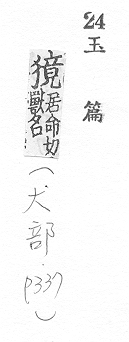 24
玉篇
獍居命切
獸名
(犬部.
p337)